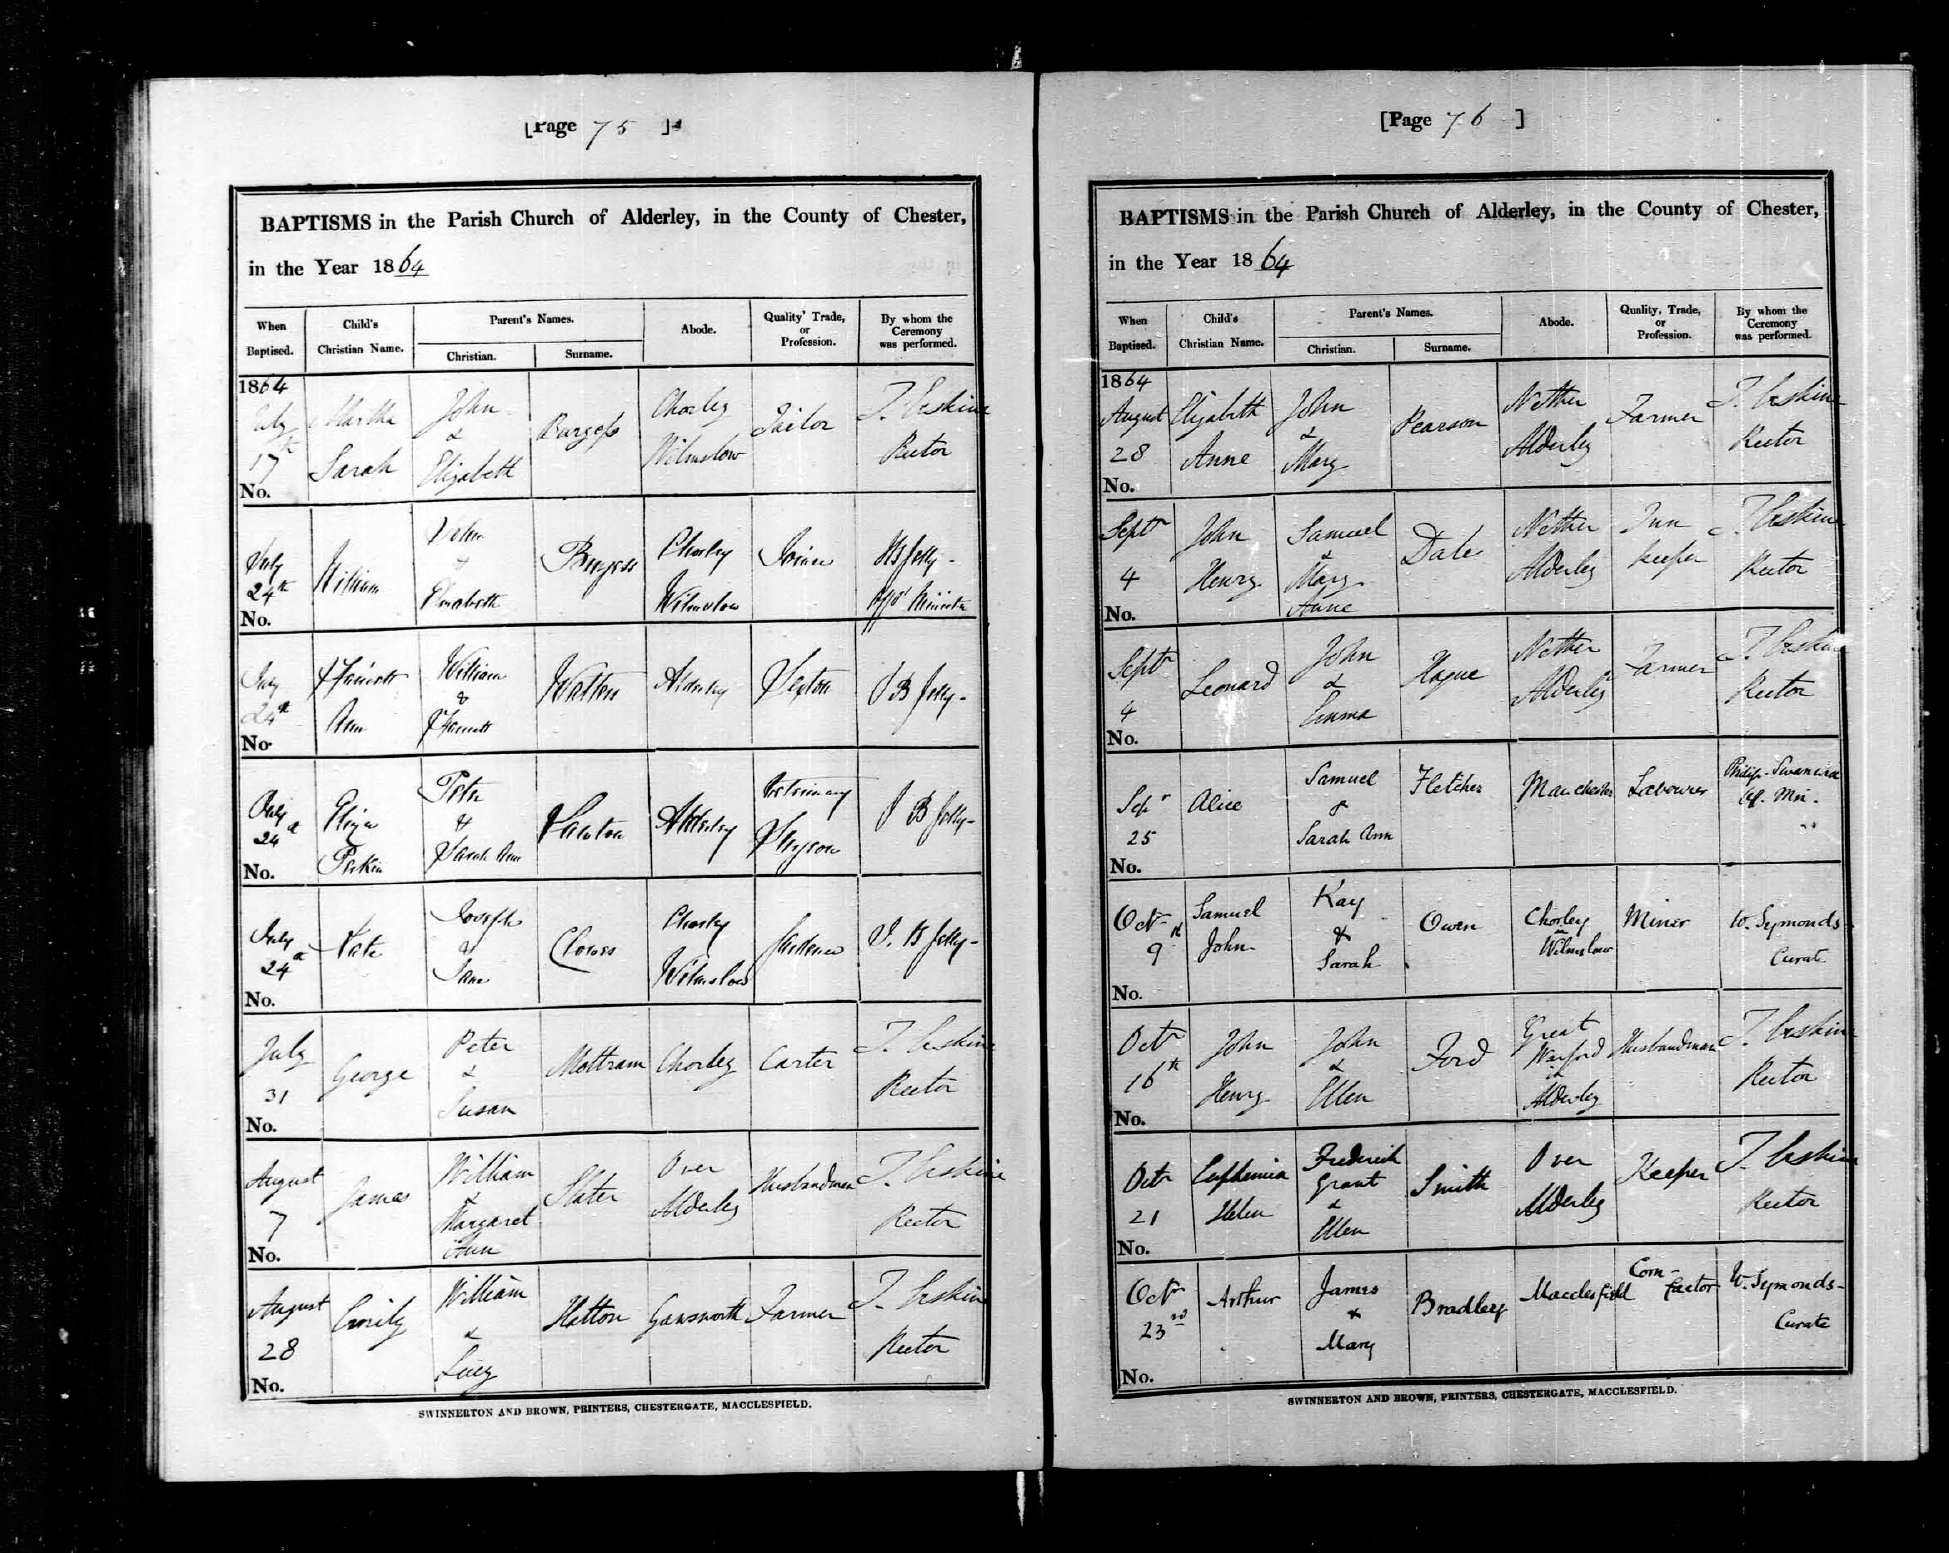 [Page 75 ]
BAPTISMS in the Parish Church of Alderley, in the County of Chester,
in the Year 1864
When Baptised. Child's Christian Name. Parent's Names. Christian. Surname. Abode. Quality, Trade, or Profession. By whom the Ceremony was performed.
1864 July 17th Martha Sarah John & Elizabeth Burgess Chorley Wilmslow Tailor T. Erskine Rector
No.
July 24th William John & Elizabeth Burgess Chorley Wilmslow Joiner Jelly Minister
No.
July 24th Harriett Ann William & Harriett Walton Alderley Sexton J B Jelly
No.
July 24th Eliza Peter & Sarah Ann Alderley Veterinary Surgeon J B Jelly
No.
July 24th Kate Joseph & Jane Clowes Chorley Wilmslow Gardener J. B Jelly
No.
July 31 George Peter & Susan Mottram Chorley Carter T. Erskine Rector
No.
August 7 James William & Margaret Ann Slater Over Alderley Husbandman T. Erskine Rector
No.
August 28 Emily William & Lucy Hatton Gawsworth Farmer T. Erskine Rector
No.
SWINNERTON AND BROWN, PRINTERS, CHESTERGATE, MACCLESFIELD.
[Page 76 ]
BAPTISMS in the Parish Church of Alderley, in the County of Chester,
in the Year 1864
When Baptised. Child's Christian Name. Parent's Names. Christian. Surname. Abode. Quality, Trade, or Profession. By whom the Ceremony was performed.
1864 August 28 Elizabeth Anne John & Mary Pearson Nether Alderley Farmer T. Erskine Rector
No.
Septr 4 John Henry Samuel & Mary Anne Dale Nether Alderley Inn keeper T. Erskine Rector
No.
Septr 4 Leonard John & Emma Hague Nether Alderley Farmer T. Erskine Rector
No.
Sepr 25 Alice Samuel & Sarah Ann Fletcher Manchester Labourer Philip Off. Min.
No.
Octr 9th Samuel John Kay & Sarah Owen Chorley in Wilmslow Miner W. Symonds Curate
No.
Octr 16th John Henry John & Ellen Ford Great Warford in Alderley Husbandman T. Erskine Rector
No.
Octr 21 Euphemia Helen Frederick Grant & Ellen Smith Over Alderley Keeper T. Erskine Rector
No.
Octr 23rd Arthur James & Mary Bradley Macclesfield Corn-Factor W. Symonds Curate
No.
SWINNERTON AND BROWN, PRINTERS, CHESTERGATE, MACCLESFIELD.